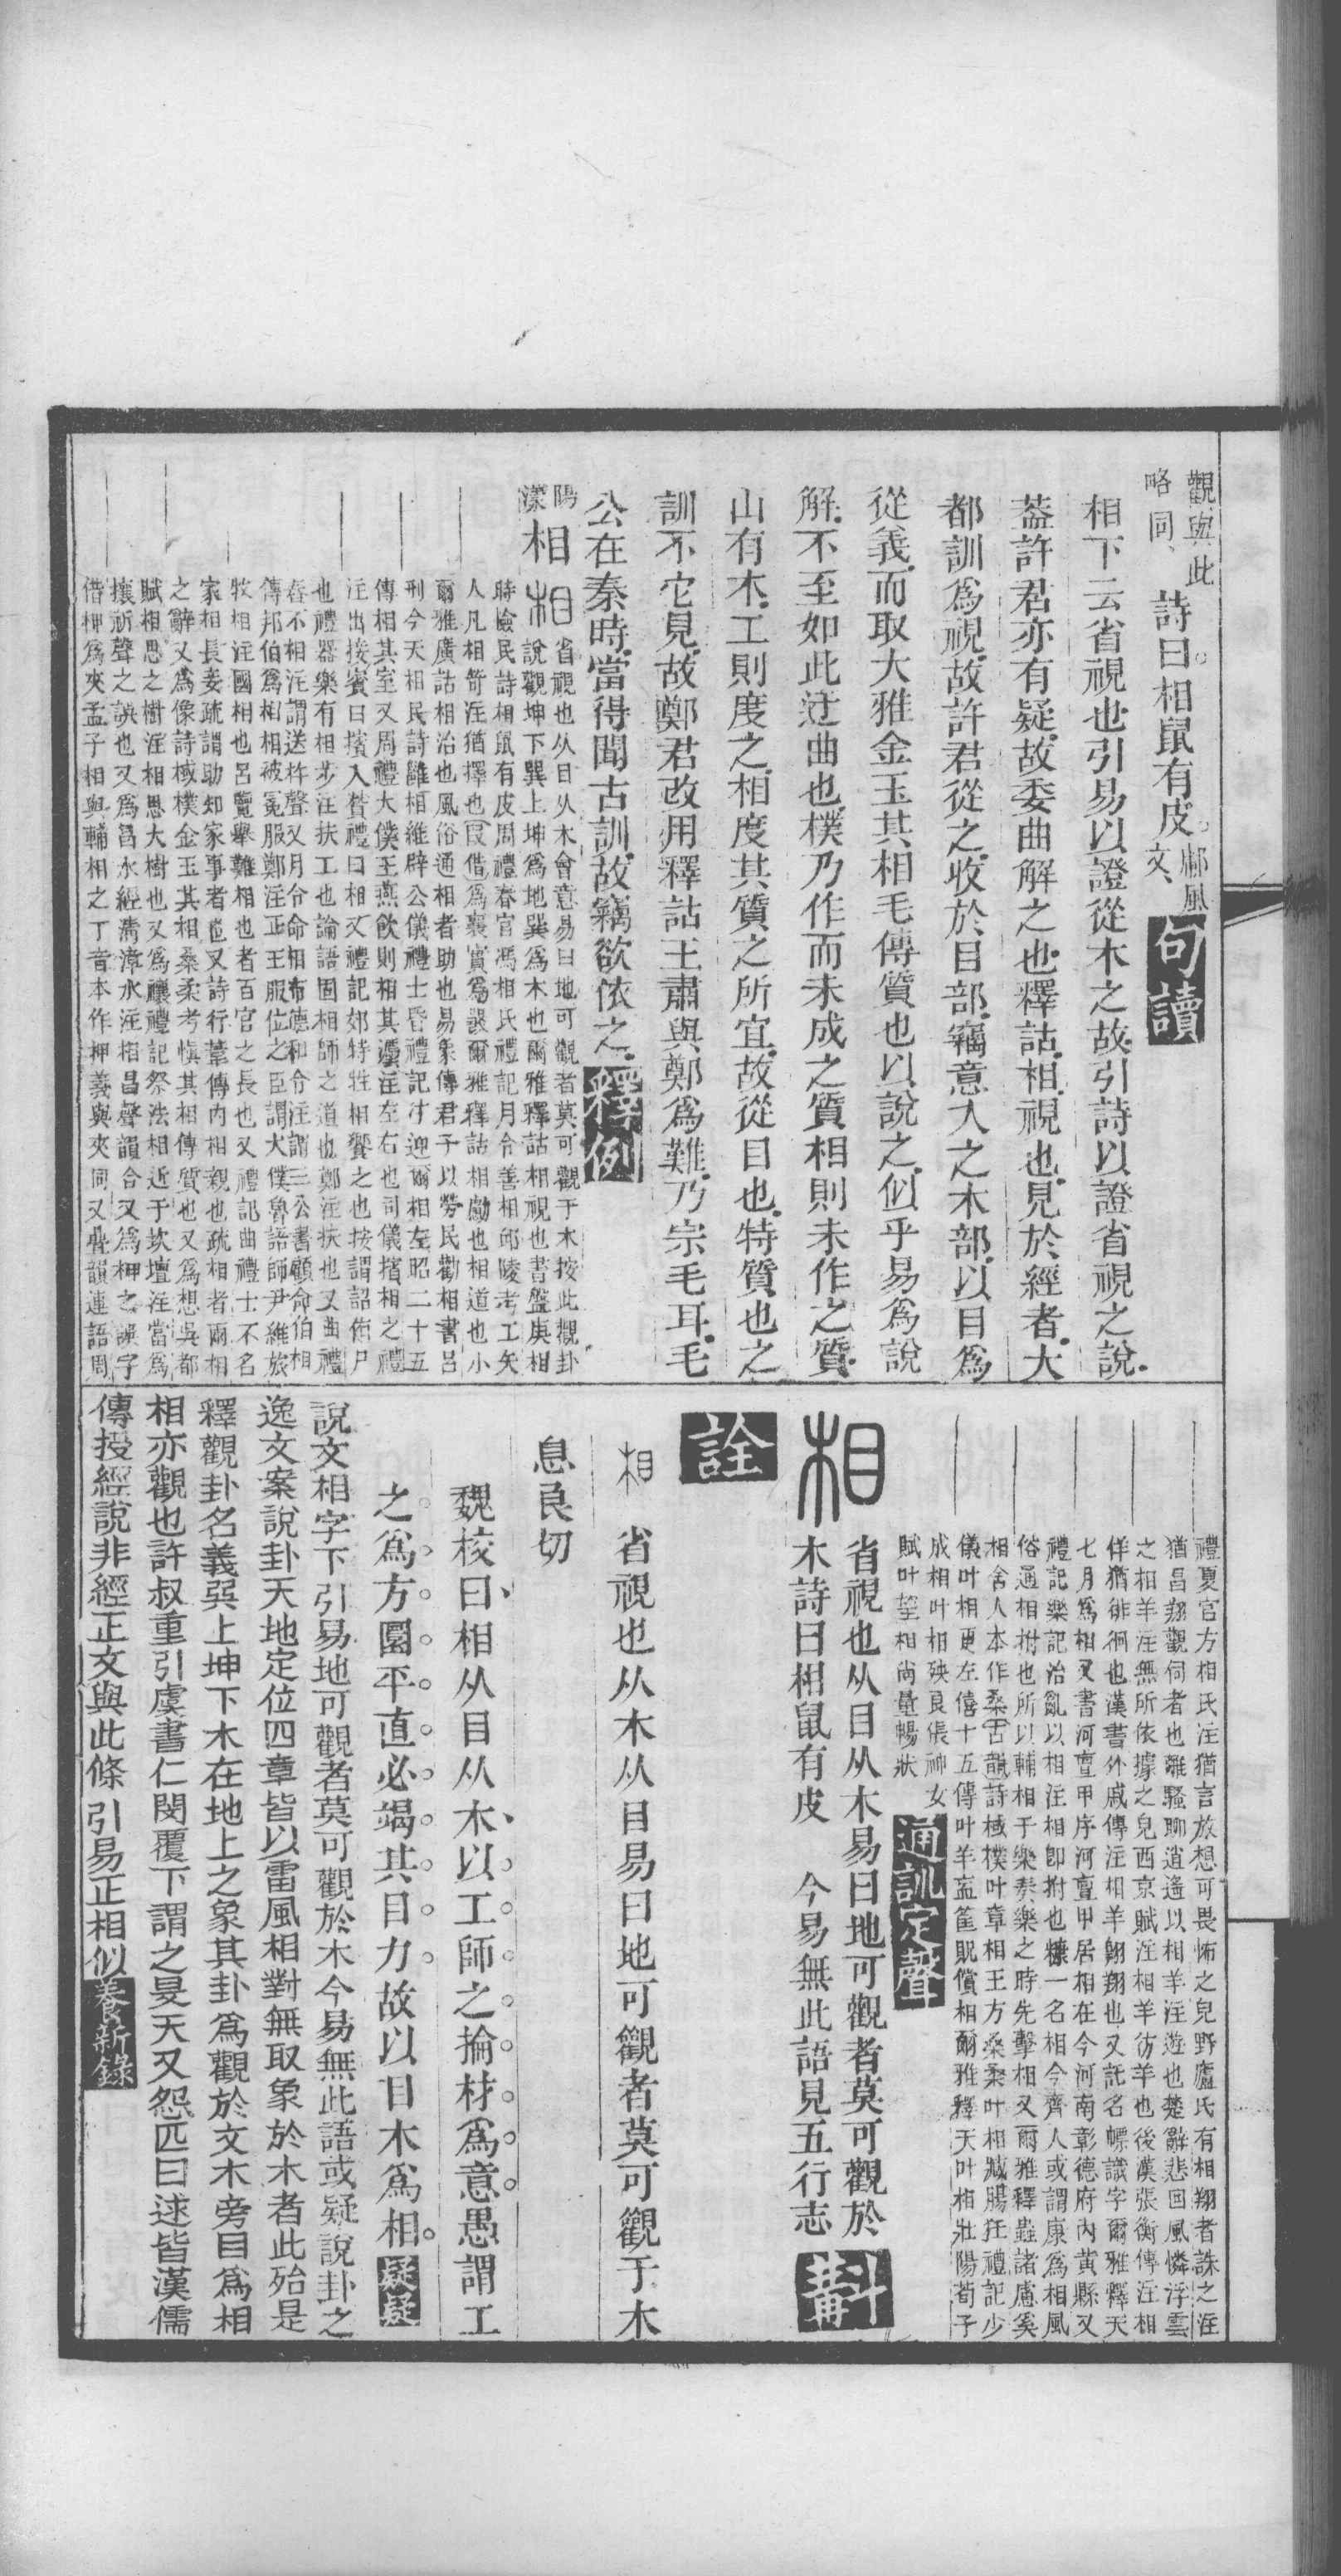 觀與此
略同、
詩曰。相鼠有皮。
鄘風
文、
句讀
相下云省視也引易以證從木之故引詩以證省視之說
葢許君亦有疑故委曲解之也釋詁相視也見於經者大
都訓爲視故許君從之收於目部竊意入之木部以目爲
從義而取大雅金玉其相毛傳質也以說之似乎易爲說
解不至如此迂曲也樸乃作而未成之質相則未作之質
山有木工則度之相度其質之所宜故從目也特質也之
訓不它見故鄭君改用釋詁王肅與鄭爲難乃宗毛耳毛
公在秦時當得聞古訓故竊欲依之釋例
陽
漾
相
相省視也从目从木會意易曰地可觀者莫可觀于木按此觀卦
說觀坤下巽上坤爲地巽爲木也爾雅釋詁相視也書盤庚相
時憸民詩相鼠有皮周禮春官馮相氏禮記月令善相邱陵考工矢
人凡相笴注猶擇也叚借爲襄實爲𤕦爾雅釋詁相勴也相道也小
爾雅廣詁相治也風俗通相者助也易象傳君子以勞民勸相書呂
刑今天相民詩雝相維辟公儀禮士昏禮記往迎爾相左昭二十五
傳相其室又周禮大僕王燕飮則相其灋注左右也司儀擯相之禮
注出接賓曰擯入贊禮曰相又禮記郊特牲相饗之也按謂詔侑尸
也禮器樂有相步注扶工也論語固相師之道也鄭注扶也又曲禮
舂不相注謂送杵聲又月令命相布德和令注謂三公書顧命伯相
傳邦伯爲相相被冕服鄭注正王服位之臣謂大僕魯語師尹維旅
牧相注國相也呂覽舉難相也者百官之長也又禮記曲禮士不名
家相長妾疏謂助知家事者也又詩行葦傳內相親也疏相者兩相
之辭又爲像詩棫樸金玉其相桑柔考愼其相傳質也又爲想吳都
賦相思之樹注相思大樹也又爲禳禮記祭法相近于坎壇注當爲
攘祈聲之誤也又爲昌水經濁漳水注相昌聲韻合又爲柙之誤字
借柙爲夾孟子相與輔相之丁音本作押義與夾同又疊韻連語周
禮夏官方相氏注猶言放想可畏怖之皃野廬氏有相翔者誅之注
猶昌翔觀伺者也離騷聊逍遙以相羊注遊也楚辭悲回風憐浮雲
之相羊注無所依據之皃西京賦注相羊彷羊也後漢張衡傳注相
佯猶徘徊也漢書外戚傳注相羊翺翔也又託名幖識字爾雅釋天
七月爲相又書河亶甲序河亶甲居相在今河南彰德府內黃縣又
禮記樂記治亂以相注相卽拊也糠一名相今齊人或謂康爲相風
俗通相拊也所以輔相于樂奏樂之時先擊相又爾雅釋蟲諸慮奚
相舍人本作桑古韻詩棫樸叶章相王方桑柔叶相臧腸狂禮記少
儀叶相更左僖十五傳叶羊衁筐貺償相爾雅釋天叶相壯陽荀子
成相叶相殃良倀神女
賦叶望相尚量暢狀
通訓定聲
相
省視也从目从木易曰地可觀者莫可觀於
木詩曰相鼠有皮　今易無此語見五行志
斠
詮
相　省視也从木从目易曰地可觀者莫可觀于木
息良切
魏校曰相从目从木以工師之掄材爲意愚謂工
之爲方圓平直必竭其目力故以目木爲相。疑疑
說文相字下引易地可觀者莫可觀於木今易無此語或疑說卦之
逸文案說卦天地定位四章皆以雷風相對無取象於木者此殆是
釋觀卦名義巽上坤下木在地上之象其卦爲觀於文木旁目爲相
相亦觀也許叔重引虞書仁閔覆下謂之旻天又怨匹曰逑皆漢儒
傳授經說非經正文與此條引易正相似養新錄